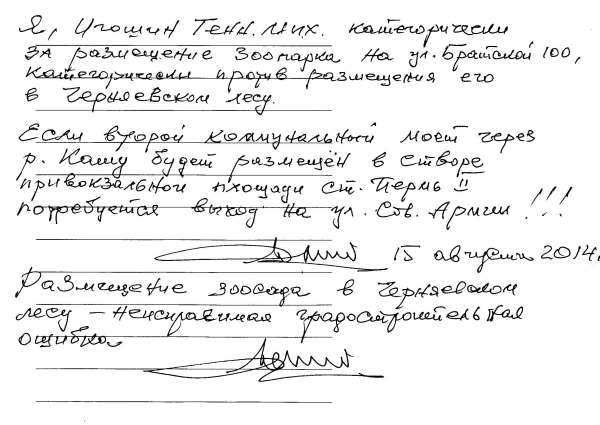 Я, Игошин Генн. Мих. категорически
за размещение зоопарка на ул. Братской 100,
категорически против размещения его
в Черняевском лесу.
Если второй коммунальный мост через
р. Каму будет размещён в створе
привокзальной площади ст. Пермь II
потребуется выход на ул. Сов. Армии !!!
15 августа 2014.
Размещение зоосада в Черняевском
лесу – неисправимая градостроительная
ошибка